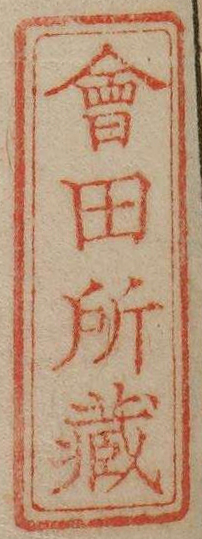 會田所藏